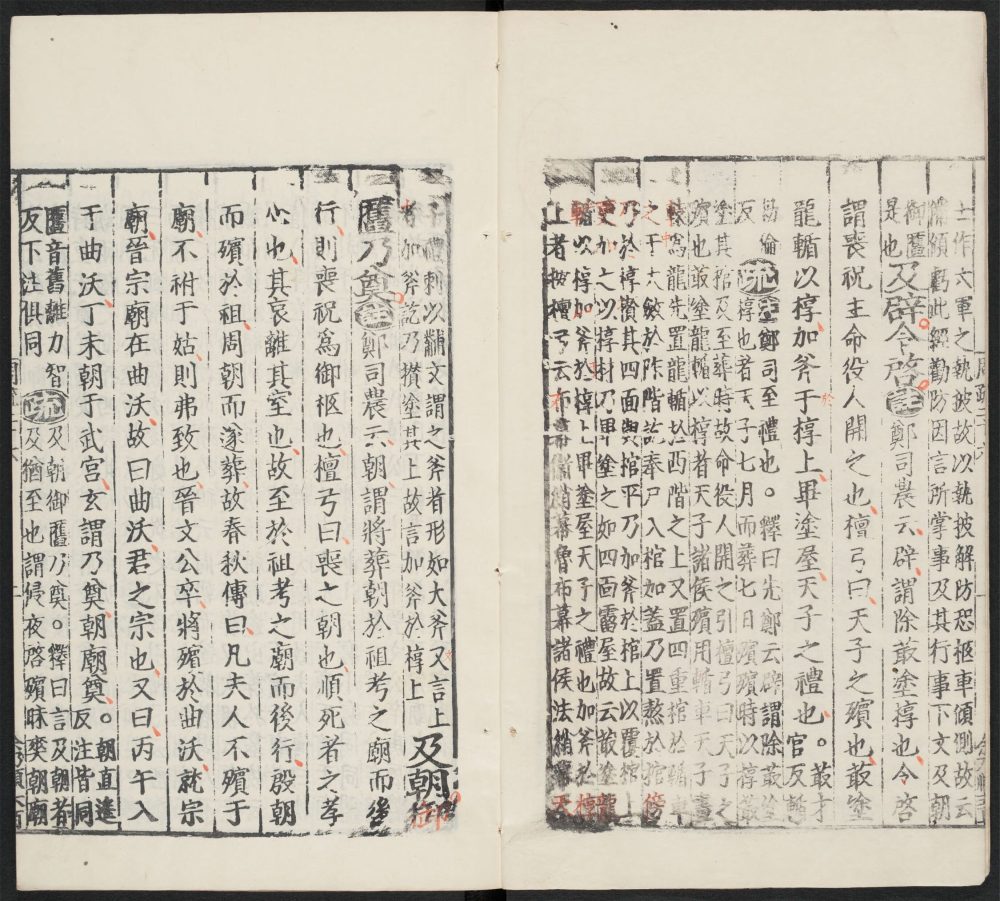 士作六軍之執披故以執披解防恐柩車傾側故云
備傾虧此經勸防因言所掌事及其行事下文及朝
御匶
是也
及辟令啓
注
鄭司農云辟謂除菆塗椁也令啓
謂喪祝主命役人開之也檀弓曰天子之殯也菆塗
龍輴以椁加斧于椁上畢塗屋天子之禮也。菆才
官反輴
勑倫
反
疏
注鄭司至禮也。釋曰先鄭云辟謂除菆塗
椁也者天子七月而葬七日殯殯時以椁菆
塗其棺及至葬時故命役人開之引檀弓曰天子之
殯也菆塗龍輴以椁者天子諸侯殯用輴車天子畫
轅爲龍先置龍輴於西階之上又置四重棺於輴車
之中大斂於阼階訖奉尸入棺加蓋乃置熬於棺傍
乃於椁欑其四面與棺平乃加斧於棺上以覆棺上
更加之以椁材乃畢塗之如四面霤屋故云菆塗龍
輴以椁加斧於椁上畢塗屋天子之禮也加斧於椁
上者按檀弓云布幕衛綃幕魯布幕諸侯法綃幕天
子禮刺以黼文謂之斧者形如大斧又言上
者加斧訖乃欑塗其上故言加斧於椁上
及朝御
匶乃奠
注
鄭司農云朝謂將葬朝於祖考之廟而後
行則喪祝爲御柩也檀弓曰喪之朝也順死者之孝
心也其哀離其室也故至於祖考之廟而後行殷朝
而殯於祖周朝而遂葬故春秋傳曰凡夫人不殯于
廟不祔于姑則弗致也晉文公卒將殯於曲沃就宗
廟晉宗廟在曲沃故曰曲沃君之宗也又曰丙午入
于曲沃丁未朝于武宮玄謂乃奠朝廟奠。朝直遙
反注皆同
匶音舊離力智
反下注俱同
疏
及朝御匶乃奠。釋曰言及朝者
及猶至也謂侵夜啓殯昧爽朝廟